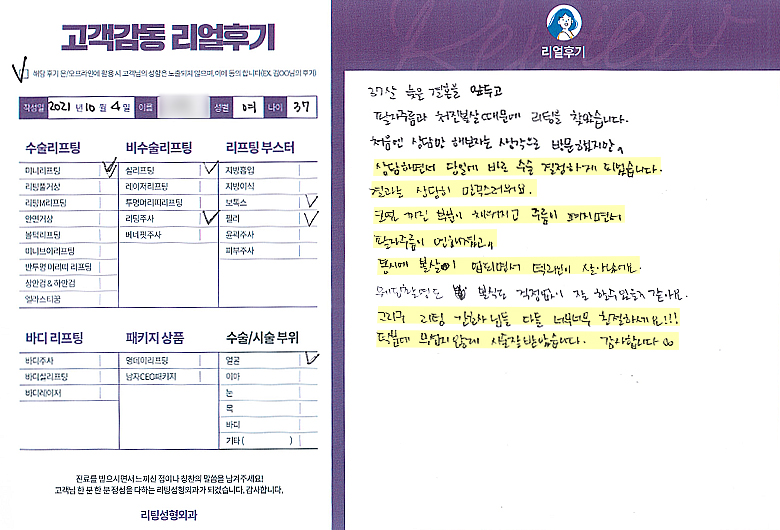 고객감동 리얼후기
해당 후기 온/오프라인에 활용 시 고객님의 성함은 노출되지 않으며, 이에 동의 합니다(EX. 김OO님의 후기)
작성일 2021년 10월 4일 이름 성별 여 나이 37
수술리프팅
미니리프팅
리팅풀거상
리팅M리프팅
안면거상
볼턱리프팅
미니브이리프팅
반투명 이리띠 리프팅
상안검 & 하안검
엘라스티꿈
비수술리프팅
실리프팅
레이저리프팅
투명머리띠리프팅
리팅주사
베네핏주사
리프팅 부스터
지방흡입
지방이식
보톡스
필러
윤곽주사
피부주사
바디 리프팅
바디주사
바디실리프팅
바디레이저
패키지 상품
원데이리프팅
남자CEO패키지
수술/시술 부위
얼굴
이마
눈
목
바디
기타 ( )
진료를 받으시면서 느끼신 점이나 칭찬의 말씀을 남겨주세요!
고객님 한 분 한 분 정성을 다하는 리팅성형외과가 되겠습니다. 감사합니다.
리팅성형외과
리얼후기
37살 늦은 결혼을 앞두고
팔자주름과 처진볼살 때문에 리팅을 찾았습니다.
처음엔 상담만 해보자는 생각으로 방문했지만,
상담하면서 당일에 바로 수술 결정하게 되었습니다.
결과는 상당히 만족스러워요.
꺼진 부분이 채워지고 주름이 펴지면서
팔자주름이 연해졌고,
동시에 볼살이 업되면서 턱라인이 살아났어요.
웨딩촬영도 본식도 걱정없이 잘 할수 있을거 같아요.
그리고 리팅 간호사님들 다들 너무너무 친절하세요!!!
덕분에 무섭지 않게 시술잘 받았습니다. 감사합니다